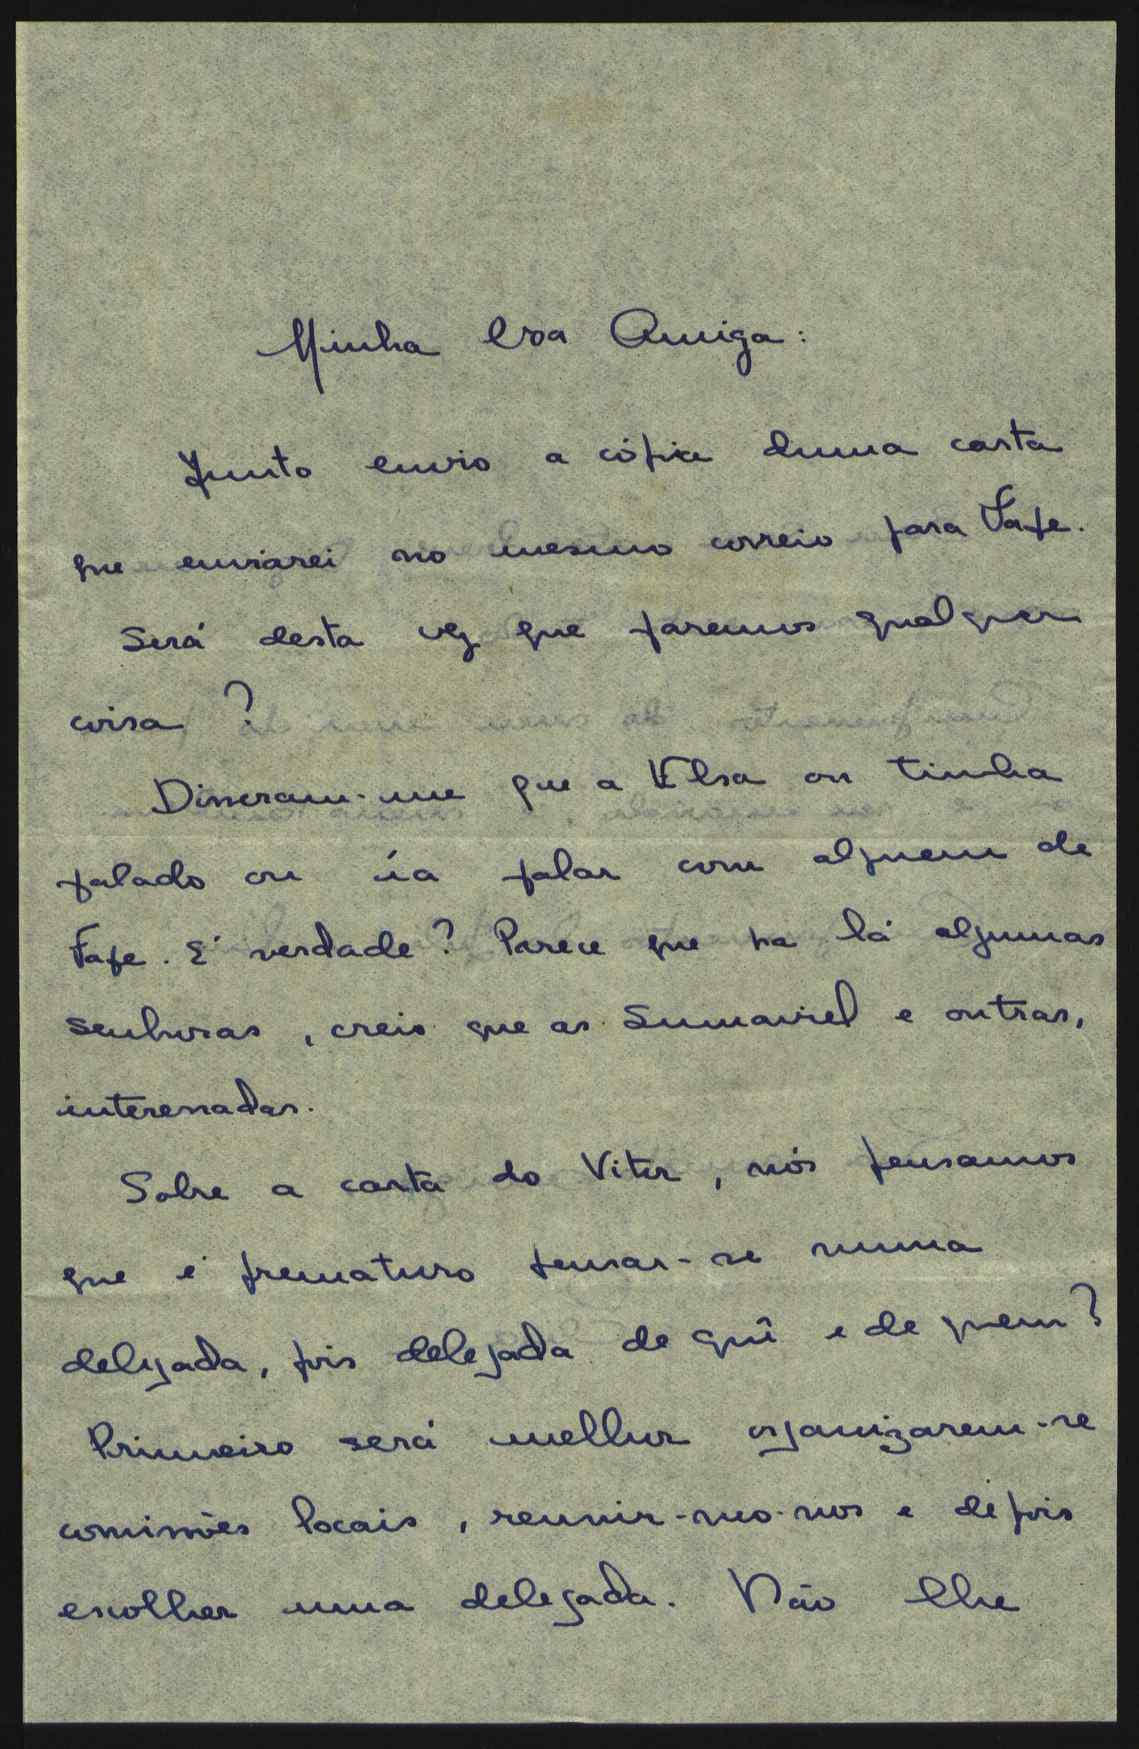 Minha boa Amiga:
Junto envio a cópia duma carta
que enviarei no mesmo correio para Fafe.
Será desta vez que faremos qualquer
coisa?
Disseram-me que a Elsa ou tinha
falado ou ía falar com alguem de
Fafe. É verdade? Parece que ha lá algumas
senhoras, creio que as Sumaviel e outras,
interessadas.
Sobre a carta do Vitor, nós pensamos
que é prematuro pensar-se numa
delegada, pois delegada de quê e de quem?
Primeiro será melhor organizarem-se
comissões locais, reunir-mo-nos e depois
escolher uma delegada. Não lhe